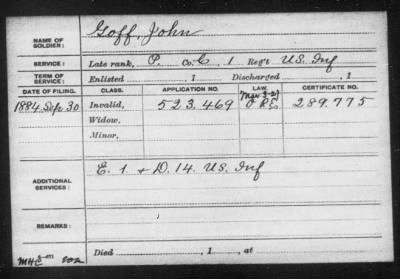 NAME OF SOLDIER: Goff, John
SERVICE: Late rank, P. Co. C, 1 Reg't U.S. Inf
TERM OF SERVICE: Enlisted , 1 Discharged , 1
DATE OF FILING. CLASS. APPLICATION NO. LAW. CERTIFICATE NO.
1884. Sep. 30 Invalid, 523.469 289.775
Widow,
Minor,
ADDITIONAL SERVICES: E. 1. + D. 14. U.S. Inf
REMARKS:
Died , 1 , at